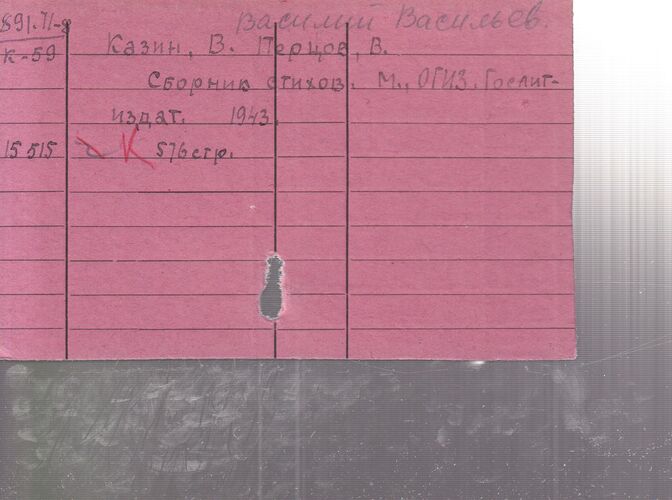 Василий Васильев.
891.71-8
К-59 Казин, В. Перцов, В.
Сборник стихов. М., ОГИЗ. Гослит-
издат. 1943.
15 515 К 576 стр.